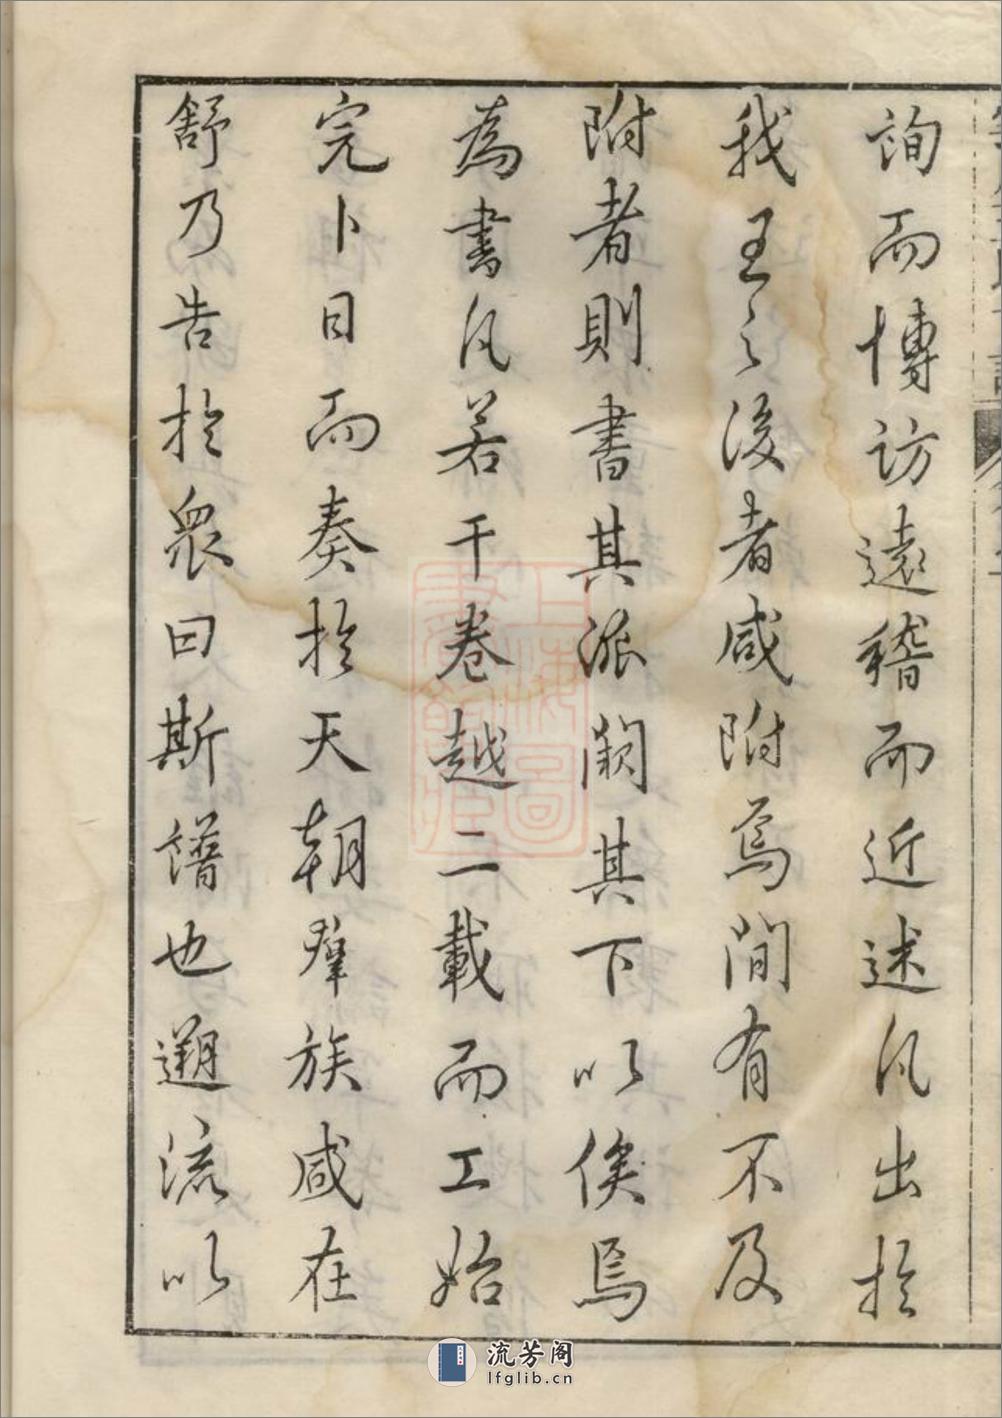 詢而博訪遠稽而近述凡出於
我王之後者咸附焉間有不及
附者則書其派闕其下以俟焉
為書凡若干卷越二載而工始
完卜日而奏於天朝羣族咸在
舒乃告於眾曰斯譜也遡流以
上海圖書館藏
流芳阁
lfglib.cn